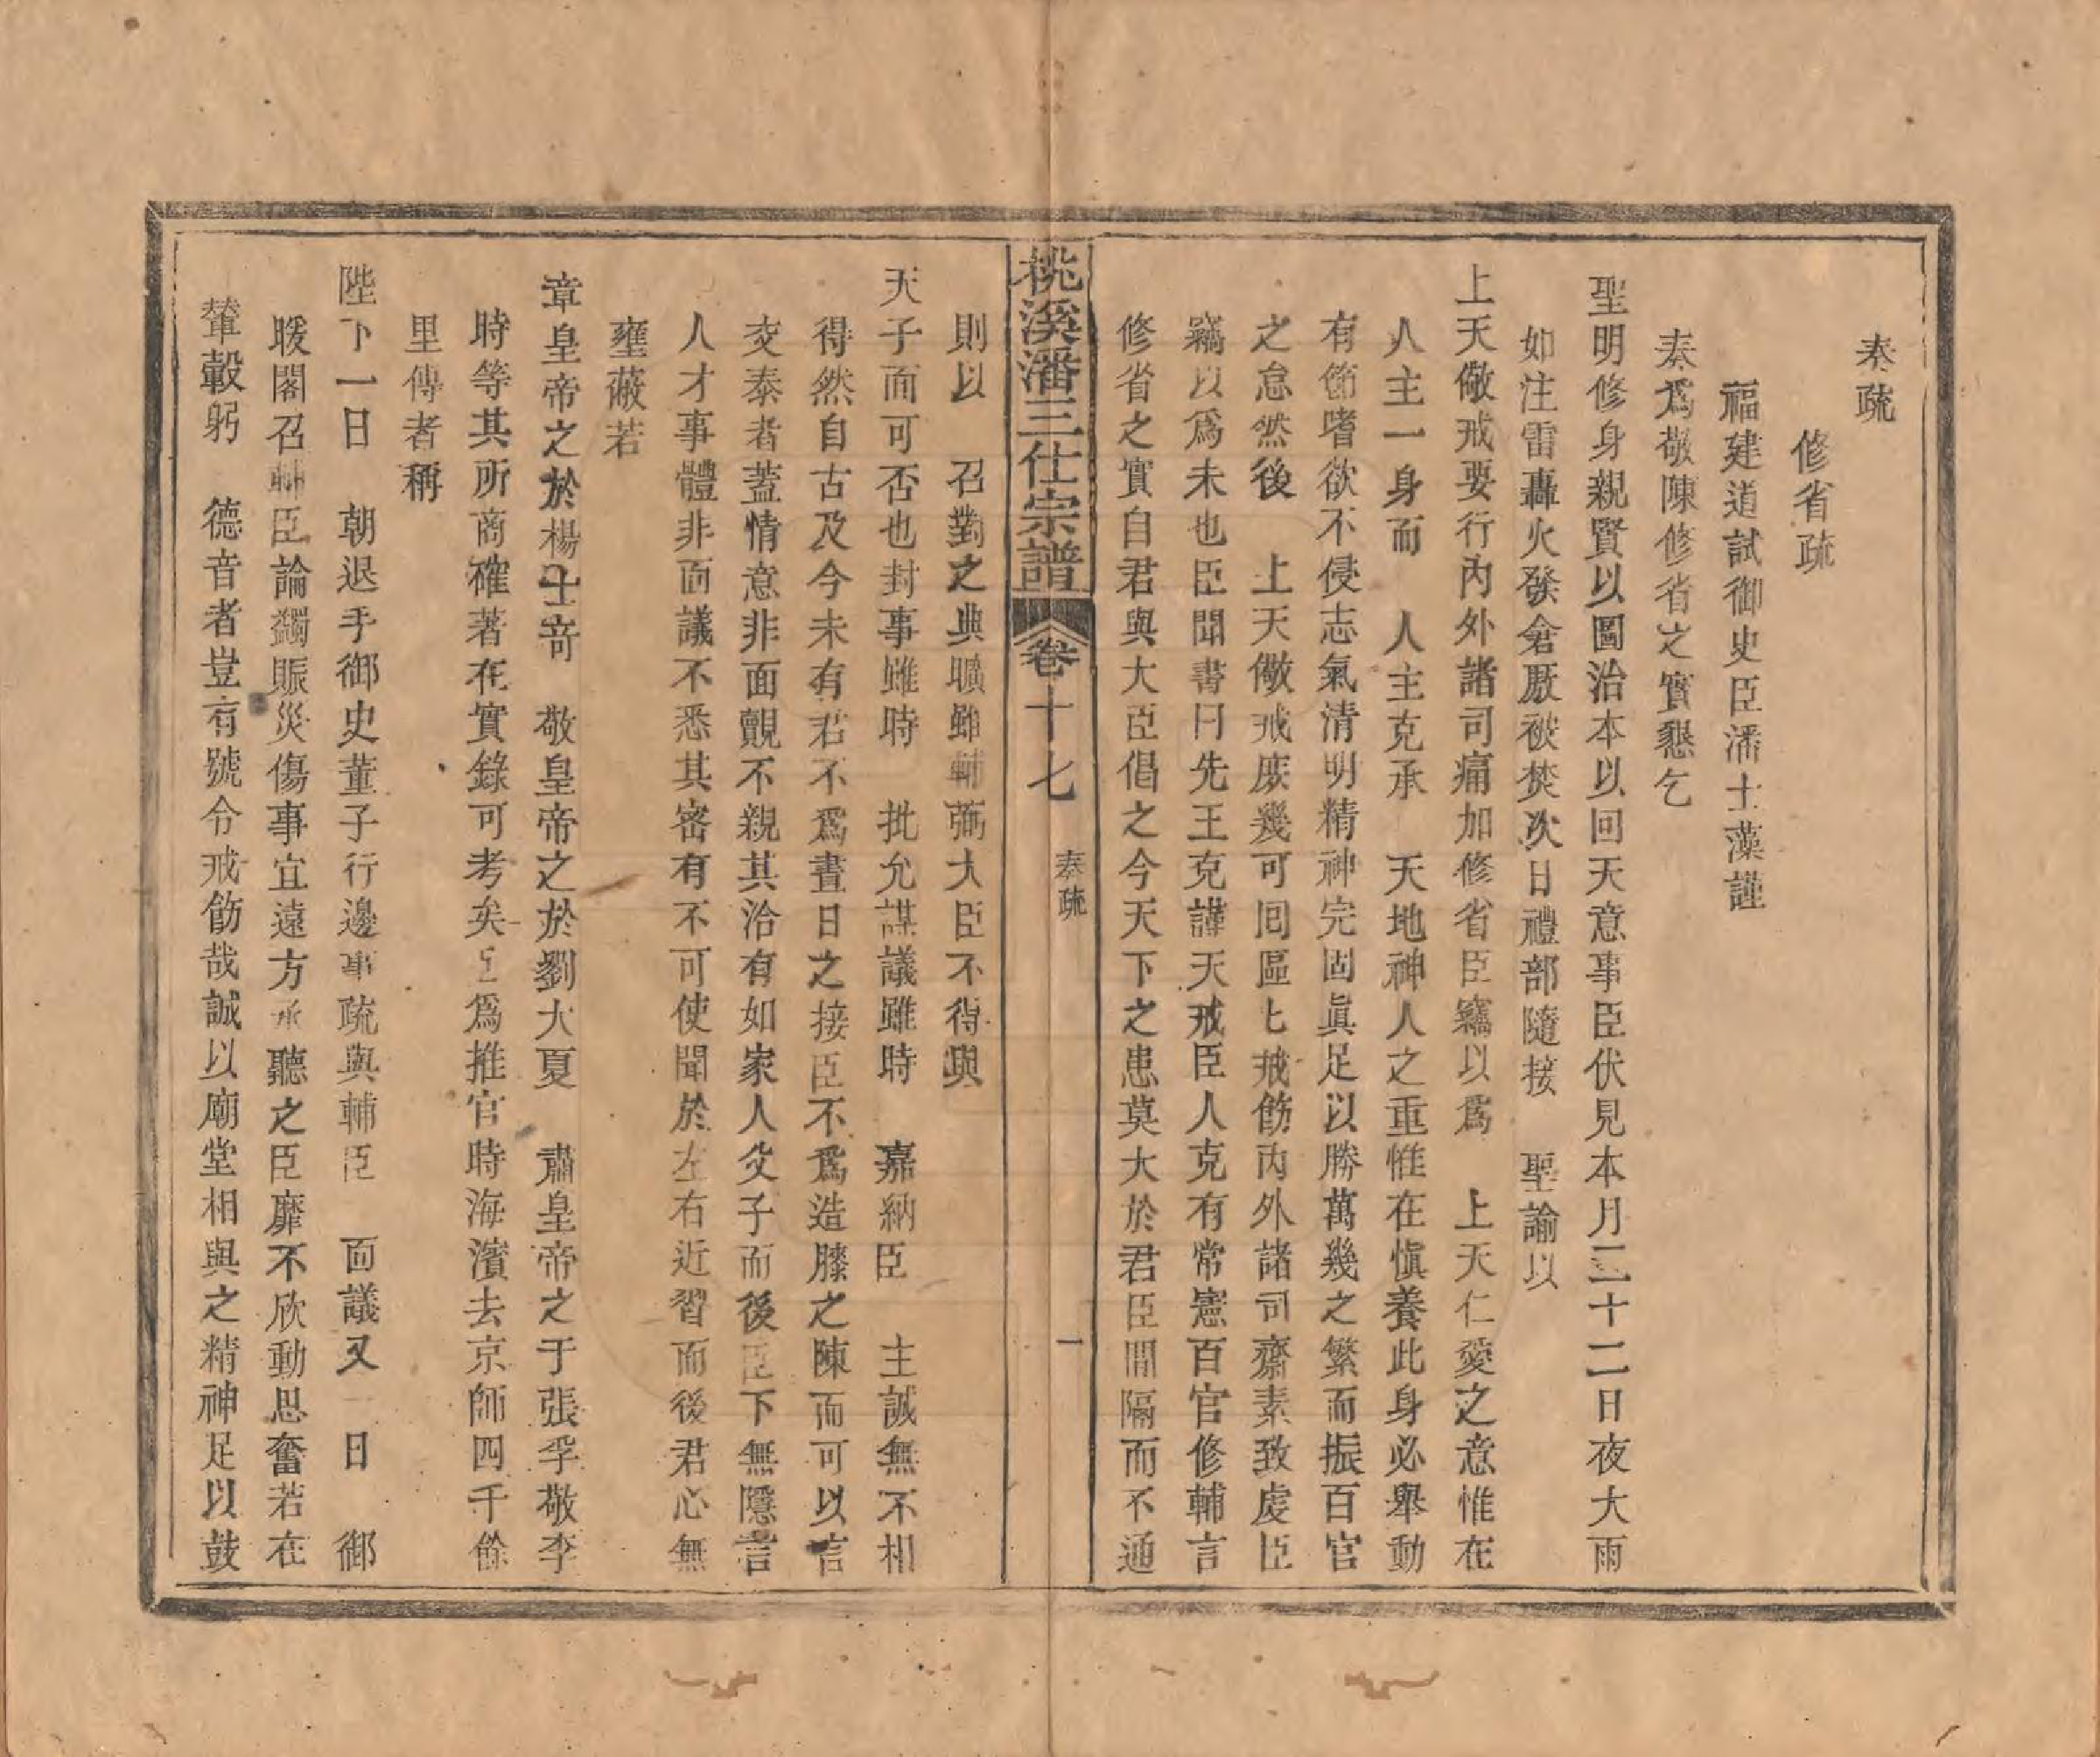 奏疏
修省疏
福建道試御史臣潘士藻謹
奏爲敬陳修省之實懇乞
聖明修身親賢以圖治本以回天意事臣伏見本月二十二日夜大雨
如注雷轟火發倉厫被焚次日禮部隨接 聖諭以
上天儆戒要行內外諸司痛加修省臣竊以爲 上天仁愛之意惟在
人主一身而 人主克承 天地神人之重惟在愼養此身必舉動
有節嗜欲不侵志氣清明精神完固眞足以勝萬幾之繁而振百官
之怠然後 上天儆戒庶幾可回區七戒飭內外諸司齋素致虔臣
竊以爲未也臣聞書曰先王克謹天戒臣人克有常憲百官修輔言
修省之實自君與大臣倡之今天下之患莫大於君臣間隔而不通
桃溪潘三仕宗譜 卷十七 奏疏 一
則以 召對之典曠雖輔弼大臣不得與
天子面可否也封事雖時 批允謀議雖時 嘉納臣 主誠無不相
得然自古及今未有君不爲晝日之接臣不爲造膝之陳而可以言
交泰者蓋情意非面覿不親其洽有如家人父子而後臣下無隱言
人才事體非面議不悉其密有不可使聞於左右近習而後君心無
壅蔽若
章皇帝之於楊士奇 敬皇帝之於劉大夏 肅皇帝之于張孚敬李
時等其所商確著在實錄可考矣 爲推官時海濱去京師四千餘
里傳者稱
陛下一日 朝退手御史董子行邊事疏與輔臣 面議又一日 御
暖閣召輔臣論蠲賑災傷事宜遠方承聽之臣靡不欣動思奮若在
輦轂躬 德音者豈有號令戒飭哉誠以廟堂相與之精神足以鼓